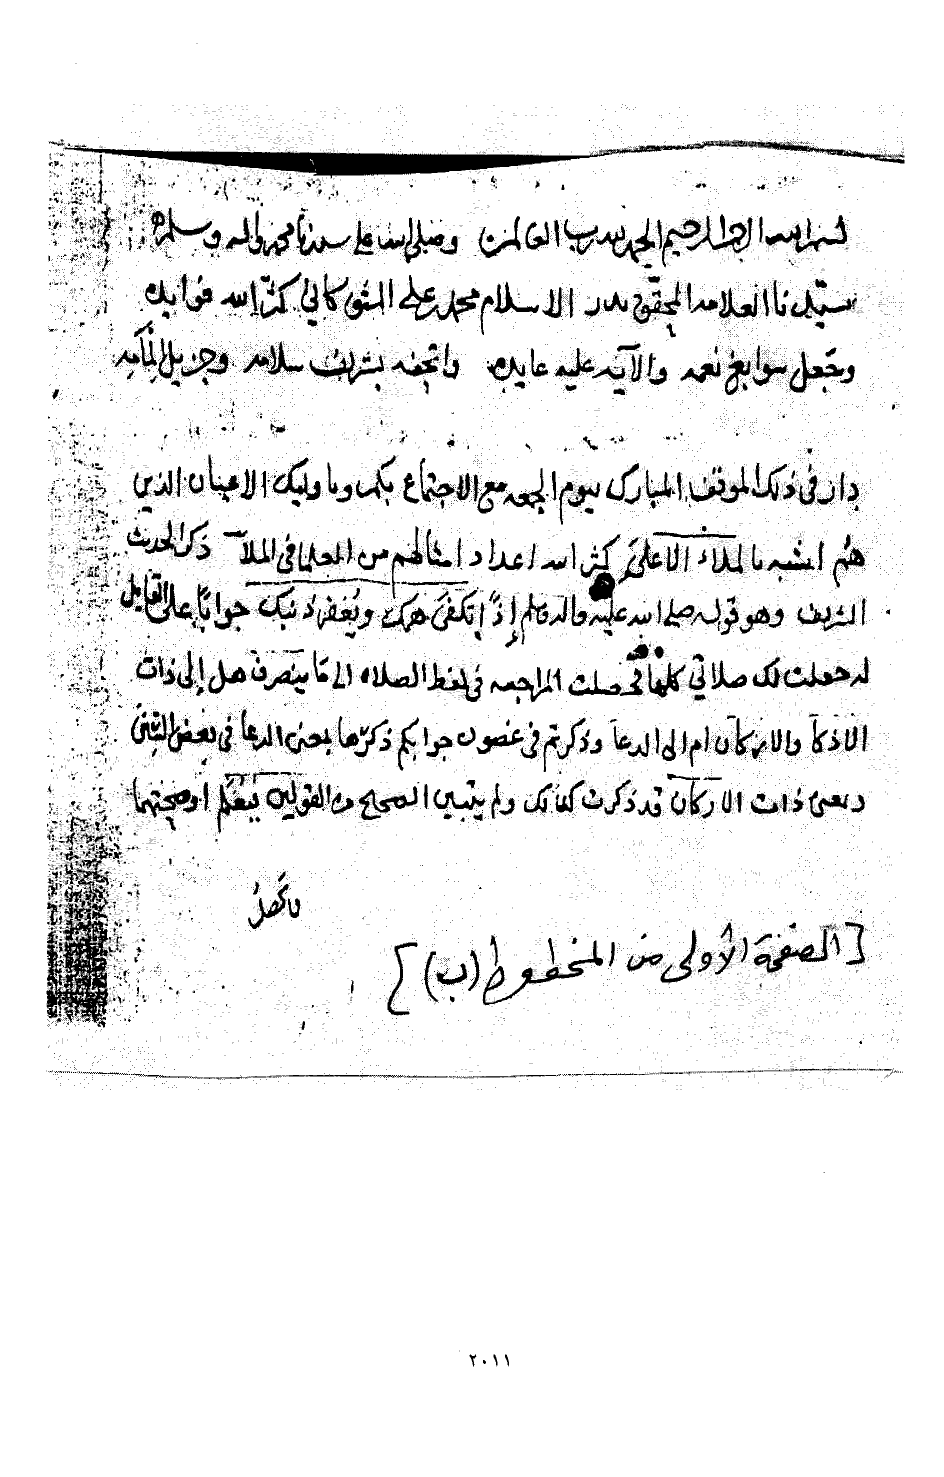 بسم الله الرحمن الرحيم الحمد لله رب العالمين وصلى الله على سيدنا محمد واله وسلم
سيدنا العلامه المحقق بدر الاسلام محمد بن علي الشوكاني كثر الله فوايده
وجعل سوابغ نعمه والآيه عليه عايده واتحفه بشريف سلامه وجزيل
دار في ذلك الموقف المبارك بيوم الجمعه مع الاجتماع بكم وباوليك الاعيان الذين
هم اشبه بالملاء الاعلى كثر الله اعداد امثالهم من العلما في الملآ ذكر الحديث
الشريف وهو قوله صلى الله عليه واله وسلم إذًا تكفى همك ويغفر ذنبك جوابًا على القايل
له جعلت لك صلاتي كلها فحصلت المراجعه في لفظ الصلاه الى ما ينصرف هل إلى ذات
الاذكار والاركان ام الى الدعا وذكرتم في غضون جوابكم ذكرها بمعنى الدعا في بعض
وبمعنى ذات الاركان قد ذكرت كذلك ولم يتبين الصحيح من القولين فيعلم او صحتهما
فالحاصل
[الصفحة الأولى من المخطوط (ب)]
٢٠١١